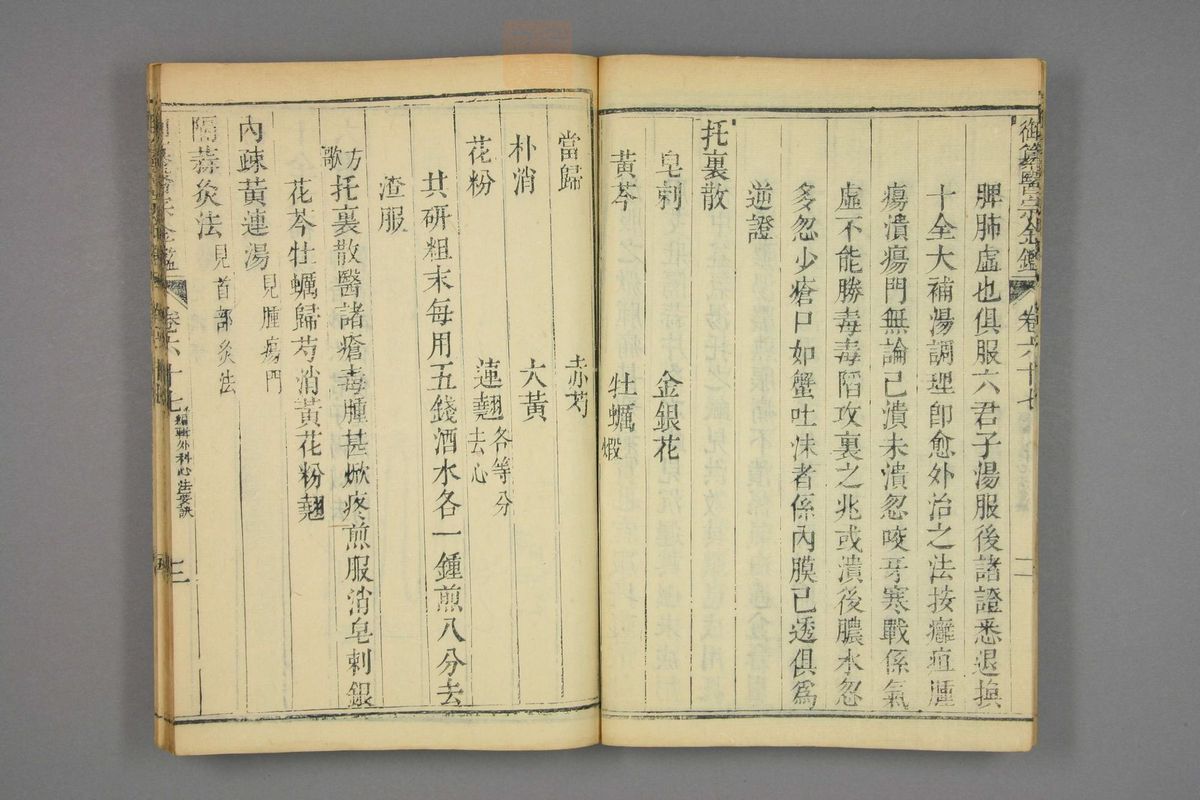 御纂醫宗金鑑 卷六十七
脾肺虛也俱服六君子湯服後諸證悉退換
十全大補湯調理即愈外治之法按癰疽腫
瘍潰瘍門無論已潰未潰忽咬牙寒戰係氣
虛不能勝毒毒陷攻裏之兆或潰後膿水忽
多忽少瘡口如蟹吐沫者係內膜已透俱為
逆證
托裏散
皂刺 金銀花
黃芩 牡蠣煅
當歸 赤芍
朴消 大黃
花粉 蓮翹去心各等分
共研粗末每用五錢酒水各一鍾煎八分去
渣服
方歌托裏散醫諸瘡毒腫甚焮疼煎服消皂刺銀
花芩牡蠣歸芍消黃花粉翹
內疎黃連湯見腫瘍門
隔蒜灸法見首部灸法
卷六十七 編輯外科心法要訣